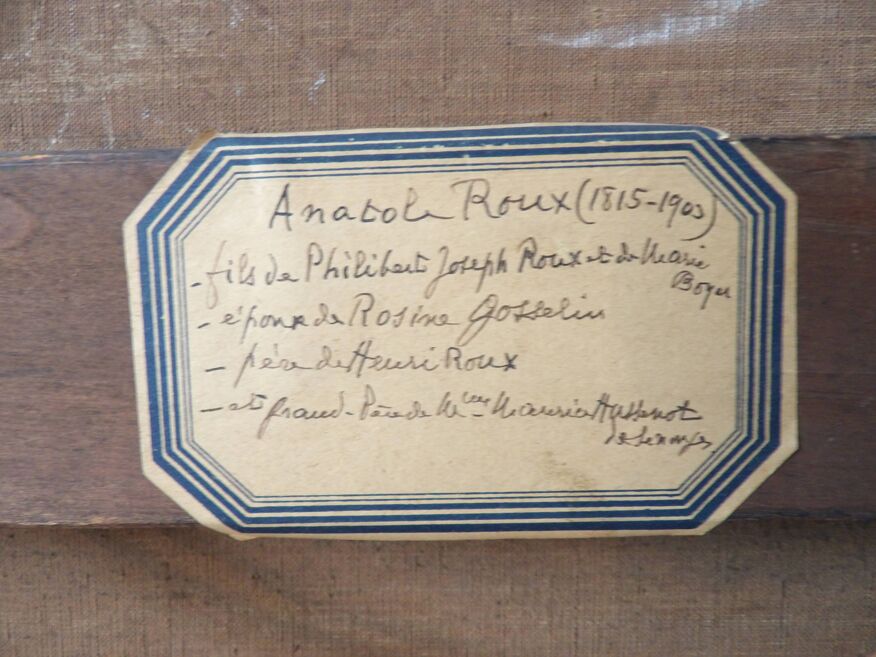 Anatole Roux (1815-1903)
- fils de Philibert Joseph Roux et de Marie
Boyer
- époux de Rosine Gosselin
- père de Henri Roux
- et grand-Père de Mme Maurice Hussenot
de Senonges